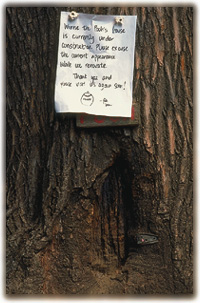 Winnie the Pooh's house
is currently under
construction. Please excuse
the current appearance
while we renovate.
Thank you and
visit us again soon!